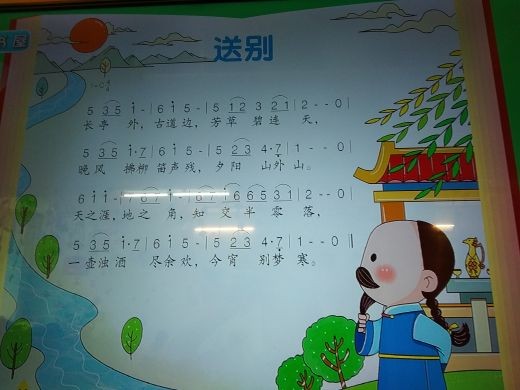 屋
送别
1=C 4/4
5 3 5 i - | 6 i 5 - | 5 1 2 3 2 1 | 2 - - 0 |
长亭 外, 古道边, 芳草 碧连 天,
5 3 5 i · 7 | 6 i 5 - | 5 2 3 4 · 7 | 1 - - 0 |
晚风 拂柳 笛声残, 夕阳 山外山。
6 i i - | 7 6 7 i - | 6 7 i 6 6 5 3 1 | 2 - - 0 |
天之涯, 地之 角, 知 交 半 零 落,
5 3 5 i · 7 | 6 i 5 - | 5 2 3 4 · 7 | 1 - - 0 ‖
一壶浊酒 尽余欢, 今宵 别梦 寒。